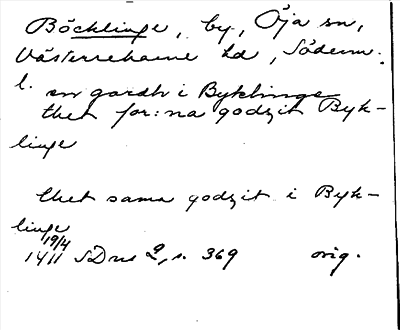 Böcklinge, by, Öja sn,
Västerrekarne hd, Söderm.
l.
en gardh i Byklinge
thet for:na godzit Byk-
linge
thet sama godzit i Byk-
linge
19/4
1411 SD ns 2, s. 369 orig.